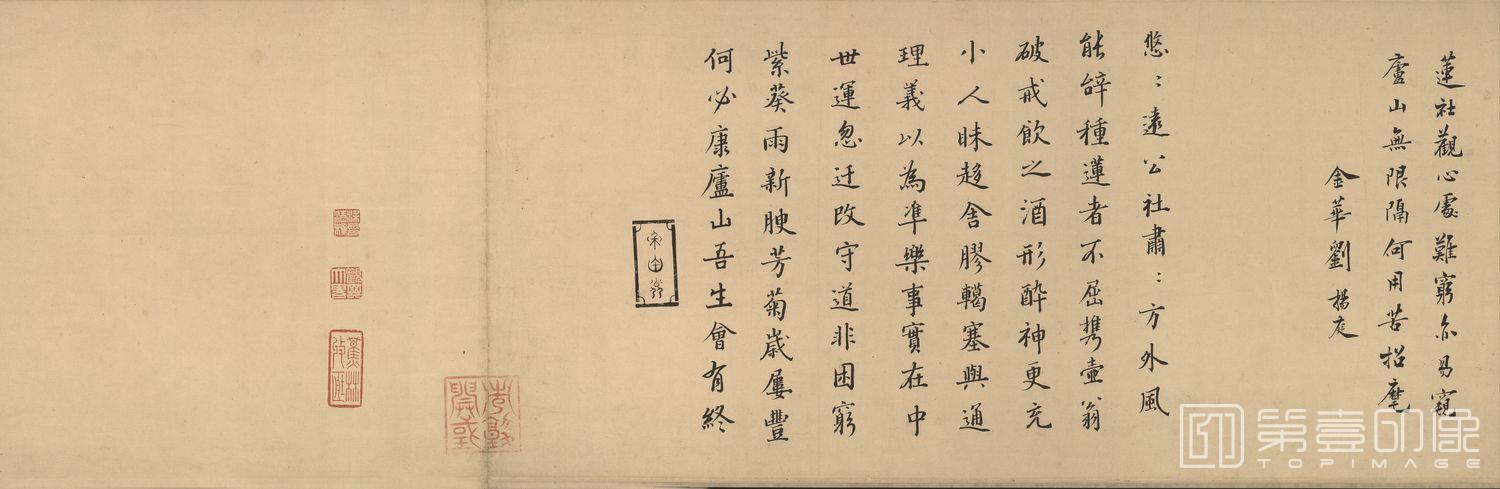 蓮社觀心處難窮亦易窺
廬山無限隔何用苦招麾
金華劉
悠〻遠公社肅〻方外風
能辭種蓮者不屈携壺翁
破戒飲之酒形酔神更充
小人昧趍舍膠轕塞與通
理義以為準樂事實在中
世運忽迁改守道非困窮
紫葵雨新腴芳菊歳屢豐
何必康廬山吾生會有終
蕉林
第壹印像
TOPIMAGE